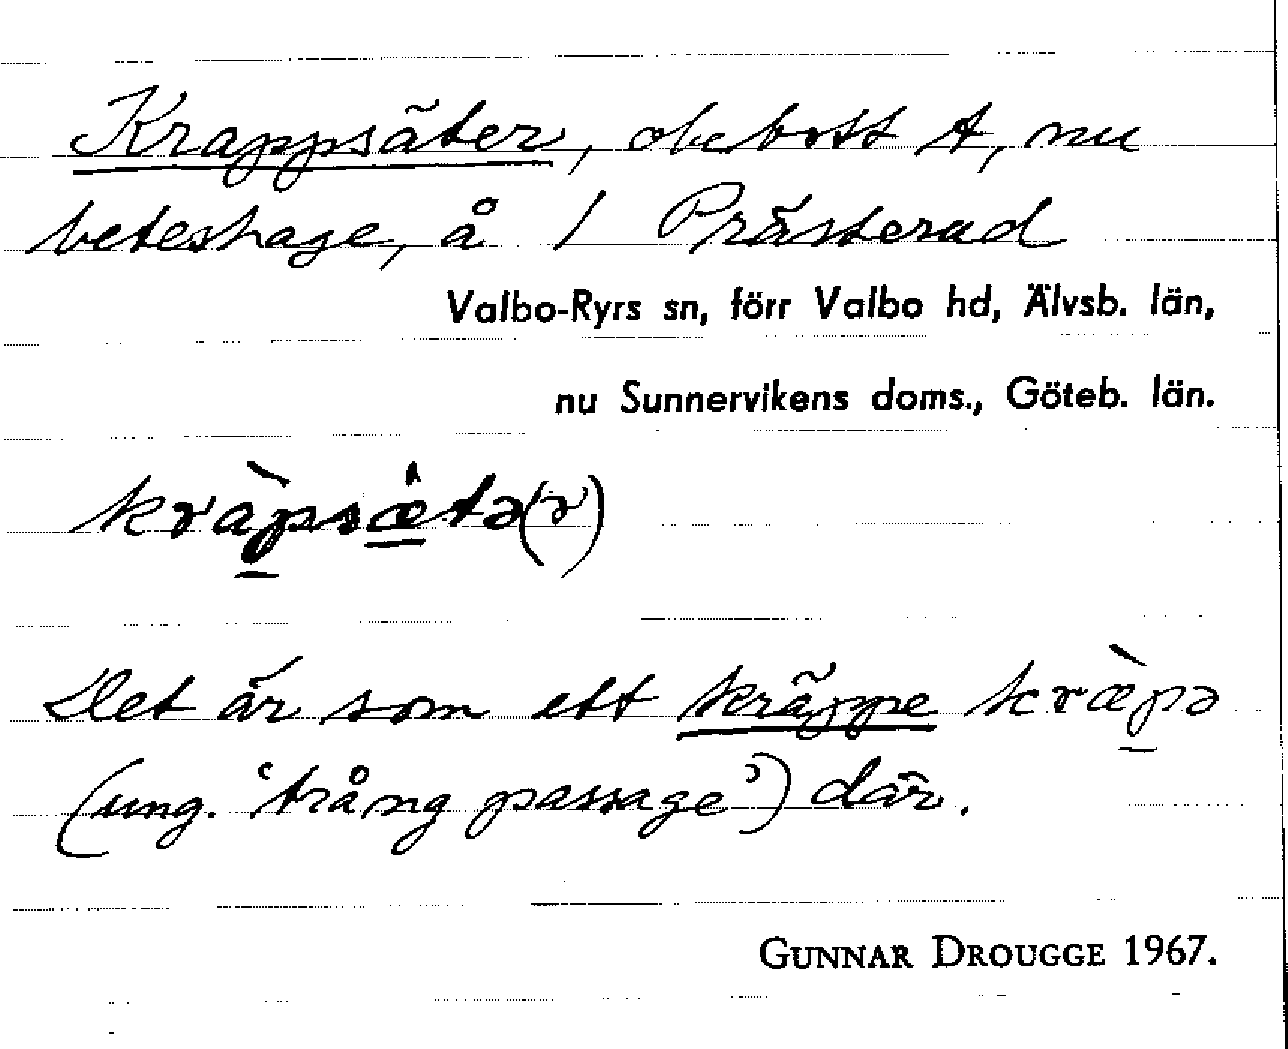 Krappsäter, obebott t, nu
beteshage, å 1 Prästerud
Valbo-Ryrs sn, förr Valbo hd, Älvsb. län,
nu Sunnervikens doms., Göteb. län.
kràpsætə(r)
Det är som ett kräppe kræ̀pə
(ung. ‘trång passage’) där.
GUNNAR DROUGGE 1967.